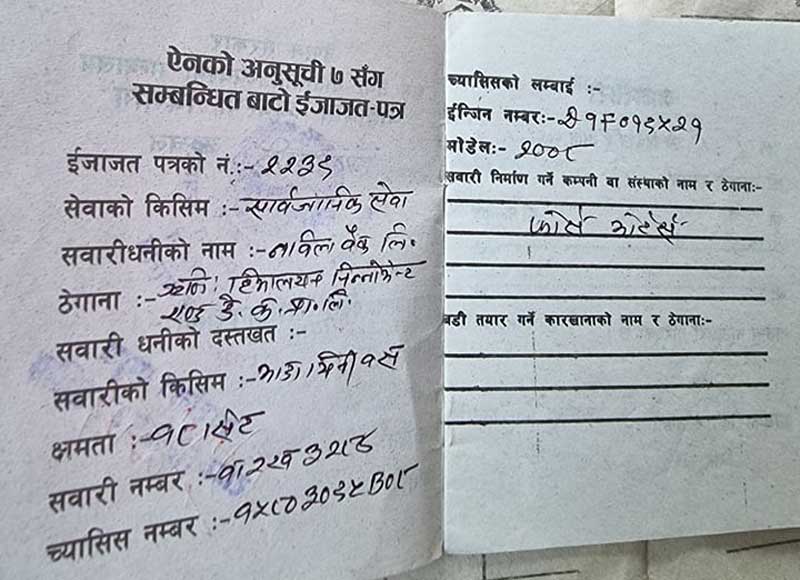 ऐनको अनुसूची ७ सँग
सम्बन्धित बाटो ईजाजत-पत्र
ईजाजत पत्रको नं.:- २२३९
सेवाको किसिम :- सार्वजानिक सेवा
सवारीधनीको नाम :- नविल वैंक लि.
ठेगाना :- ऋनि। हिमालयन
एण्ड डे. क. प्रा. लि.
सवारी धनीको दस्तखत :-
सवारीको किसिम :- भाडा। मिनी वस
क्षमता :- १८। सिट
सवारी नम्बर :- वा २ ख
च्यासिस नम्बर :-
च्यासिसको लम्बाई :-
ईन्जिन नम्बर:-
मोडेल:- २००८
सवारी निर्माण गर्ने कम्पनी वा संस्थाको नाम र ठेगाना:-
फोर्स मोटर्स
बडी तयार गर्ने कारखानाको नाम र ठेगाना:-